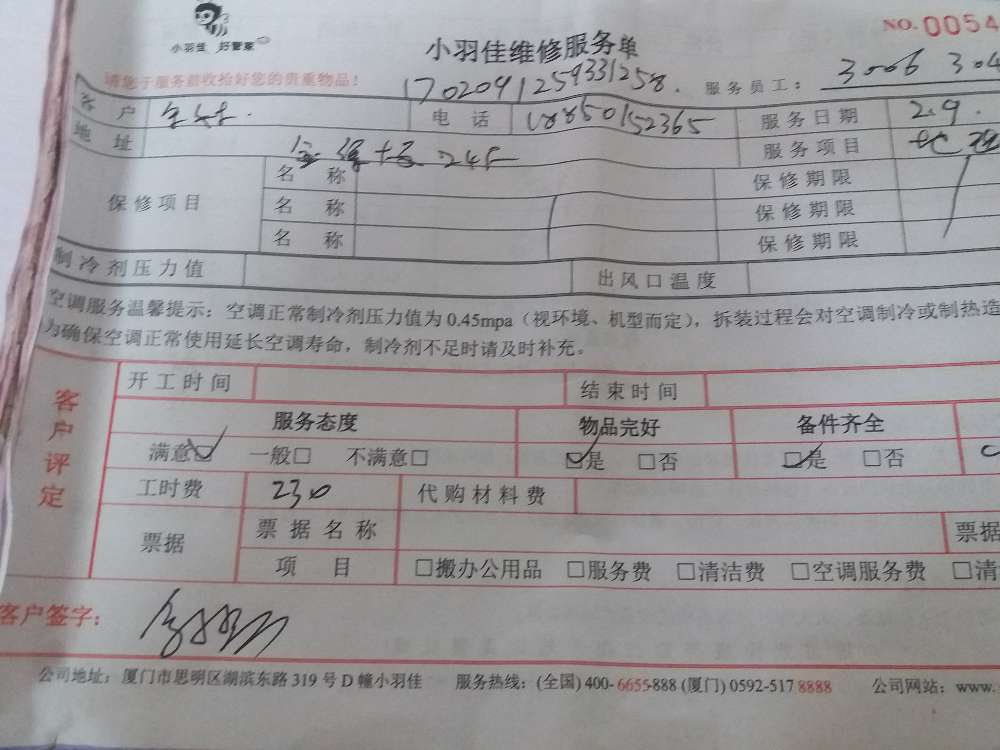 小羽佳 好管家
NO.0054
小羽佳维修服务单
请您于服务前收拾好您的贵重物品!
1702091259331258.
服务员工: 3006 304
客户
电话 18850152365
服务日期 2.9.
地址
服务项目
保修项目 名称 保修期限
名称 保修期限
名称 保修期限
制冷剂压力值 出风口温度
空调服务温馨提示: 空调正常制冷剂压力值为0.45mpa(视环境、机型而定),拆装过程会对空调制冷或制热造
为确保空调正常使用延长空调寿命,制冷剂不足时请及时补充。
客户评定
开工时间 结束时间
服务态度 物品完好 备件齐全
满意☑ 一般□ 不满意□ ☑是 □否 ☑是 □否
工时费 230 代购材料费
票据 票据名称 票据
项目 □搬办公用品 □服务费 □清洁费 □空调服务费 □清
客户签字:
公司地址: 厦门市思明区湖滨东路319号D幢小羽佳 服务热线: (全国) 400-6655-888 (厦门) 0592-5178888 公司网站: www.